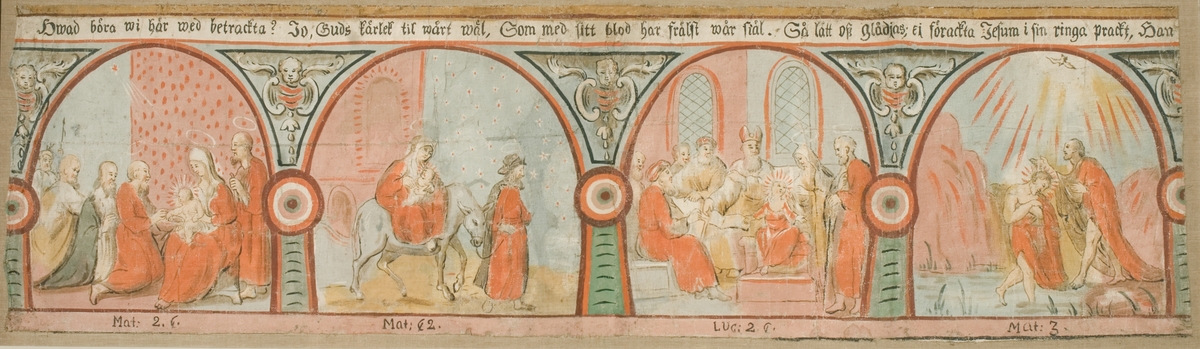 Hwad böra wi här wed betrackta? Jo, Guds kärlek til wårt wäl, Som med sitt blod har frälst wår själ. Så lått oß glädjas, ei förackta Jesum i sin ringa prackt, Han
Mat: 2. C.
Mat: C 2.
LUC: 2 C.
Mat: 3.